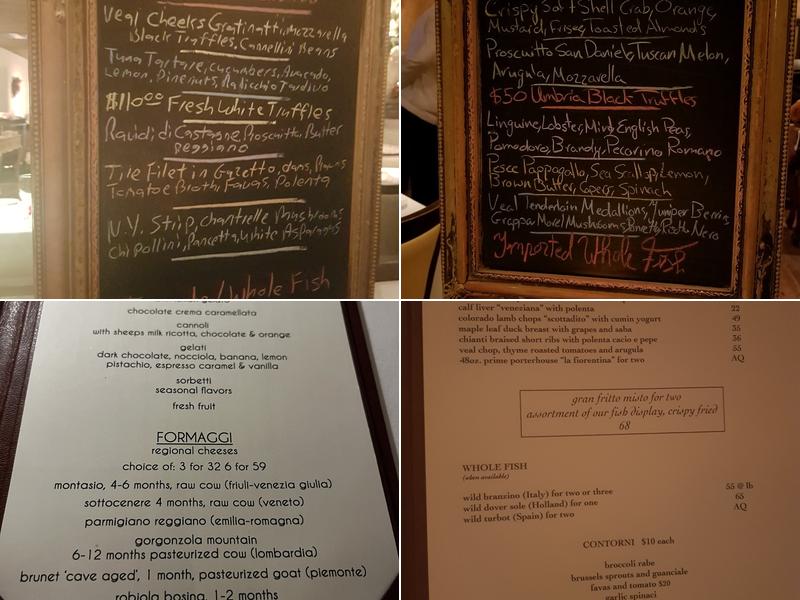 Veal Cheeks Gratinatti, Mozzarella
Black Truffles, Cannellini Beans
Tuna Tartare, Cucumbers, Avocado,
Lemon, Pinenuts, Radicchio Tardivo
$110.00 Fresh White Truffles
Ravioli di Castagne Proscuitto, Butter
Reggiano
Tile Filet in Guzetto, Clams, Prawns
Tomatoe Broth, Favas, Polenta
N.Y. Strip, Chantrelle Mushrooms
Chipollini, Pancetta, White Asparagus
/Whole Fish
Crispy Soft Shell Crab, Orange,
Mustard, Frisee, Toasted Almonds
Proscuitto San Daniele, Tuscan Melon,
Arugula, Mozzarella
$50 Umbria Black Truffles
Linguine, Lobster, Mint, English Peas,
Pomodoro, Brandy, Pecorino Romano
Pesce Pappagallo, Sea Scallop, Lemon,
Brown Butter, Capers, Spinach
Veal Tenderloin Medallions, Juniper Berries
Grappa Morel Mushrooms,
Imported Whole Fish
chocolate crema caramellata
cannoli
with sheeps milk ricotta, chocolate & orange
gelati
dark chocolate, nocciola, banana, lemon
pistachio, espresso caramel & vanilla
sorbetti
seasonal flavors
fresh fruit
FORMAGGI
regional cheeses
choice of: 3 for 32 6 for 59
montasio, 4-6 months, raw cow (friuli-venezia giulia)
sottocenere 4 months, raw cow (veneto)
parmigiano reggiano (emilia-romagna)
gorgonzola mountain
6-12 months pasteurized cow (lombardia)
brunet 'cave aged', 1 month, pasteurized goat (piemonte)
robiola bosina, 1-2 months
calf liver "veneziana" with polenta 22
colorado lamb chops "scottadito" with cumin yogurt 49
maple leaf duck breast with grapes and saba 35
chianti braised short ribs with polenta cacio e pepe 36
veal chop, thyme roasted tomatoes and arugula 55
48oz. prime porterhouse "la fiorentina" for two AQ
gran fritto misto for two
assortment of our fish display, crispy fried
68
WHOLE FISH
(when available)
wild branzino (Italy) for two or three 55 @ lb
wild dover sole (Holland) for one 65
wild turbot (Spain) for two AQ
CONTORNI $10 each
broccoli rabe
brussels sprouts and guanciale
favas and tomato $20
garlic spinaci